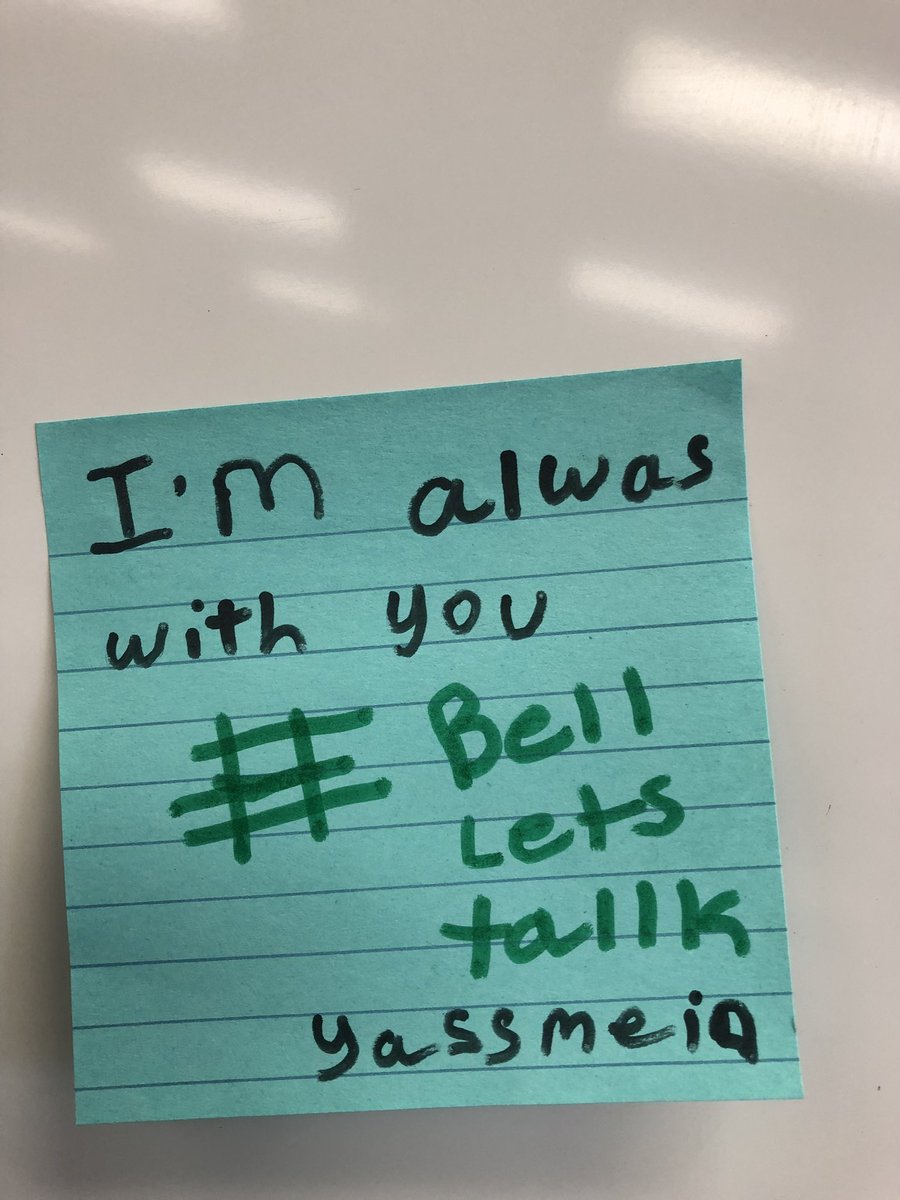 I'm alwas
with you
# Bell
Lets
tallk
yassmein